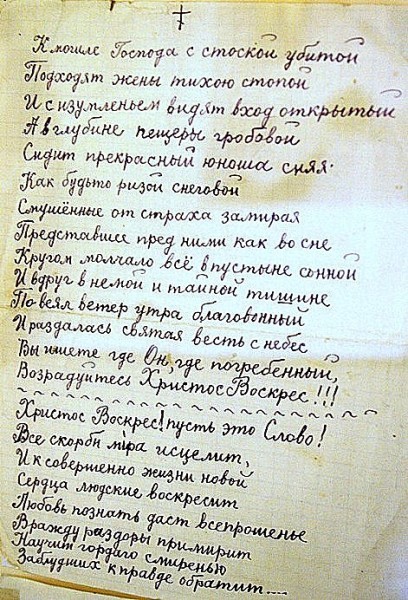 К могиле Господа с стоской убитой
Подходят жены тихою стопой
И с изумленьем видят вход открытый
А в глубине пещеры гробовой
Сидит прекрасный юноша сияя.
Как будьто ризой снеговой
Смушённые от страха замирая
Представшее пред ними как во сне
Кругом молчало всё в пустыне сонной
И вдруг в немой и тайной тишине
Повеял ветер утра благовонный
И раздалась святая весть с небес
Вы ищете где Он, где погребенный,
Возрадуйтесь Христос Воскрес!!!
Христос Воскрес! пусть это Слово!
Все скорби міра исцелит,
И к совершенно жизни новой
Сердца людские воскресит
Любовь познать даст всепрошенье
Вражду раздоры примирит
Научит гордаго смиренью
Заблудших к правде обратит....